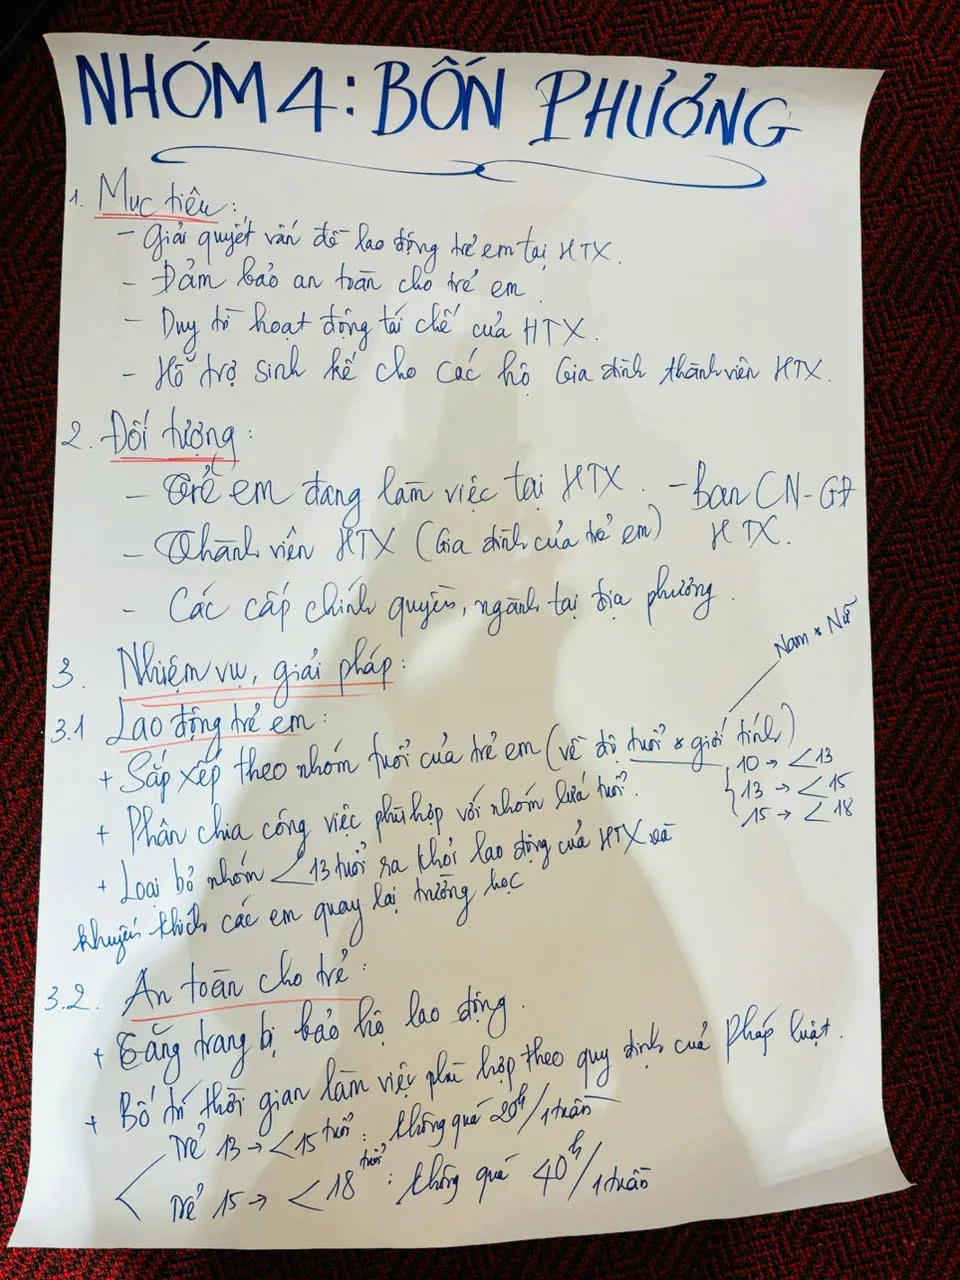 NHÓM 4: BỐN PHƯƠNG
1. Mục tiêu:
- Giải quyết vấn đề lao động trẻ em tại HTX.
- Đảm bảo an toàn cho trẻ em.
- Duy trì hoạt động tái chế của HTX.
- Hỗ trợ sinh kế cho các hộ Gia đình thành viên HTX.
2. Đối tượng:
- Trẻ em đang làm việc tại HTX. - Ban CN-GĐ
- Thành viên HTX (Gia đình của trẻ em) HTX.
- Các cấp chính quyền, ngành tại địa phương.
Nam & Nữ
3. Nhiệm vụ, giải pháp:
3.1 Lao động trẻ em:
+ Sắp xếp theo nhóm tuổi của trẻ em (về độ tuổi & giới tính)
10 → <13
13 → <15
15 → <18
+ Phân chia công việc phù hợp với nhóm lứa tuổi.
+ Loại bỏ nhóm <13 tuổi ra khỏi lao động của HTX và
khuyến khích các em quay lại trường học
3.2. An toàn cho trẻ:
+ Tăng trang bị bảo hộ lao động.
+ Bố trí thời gian làm việc phù hợp theo quy định của Pháp luật.
Trẻ 13 → <15 tuổi: không quá 20h/1 tuần
Trẻ 15 → <18 tuổi: không quá 40h/1 tuần